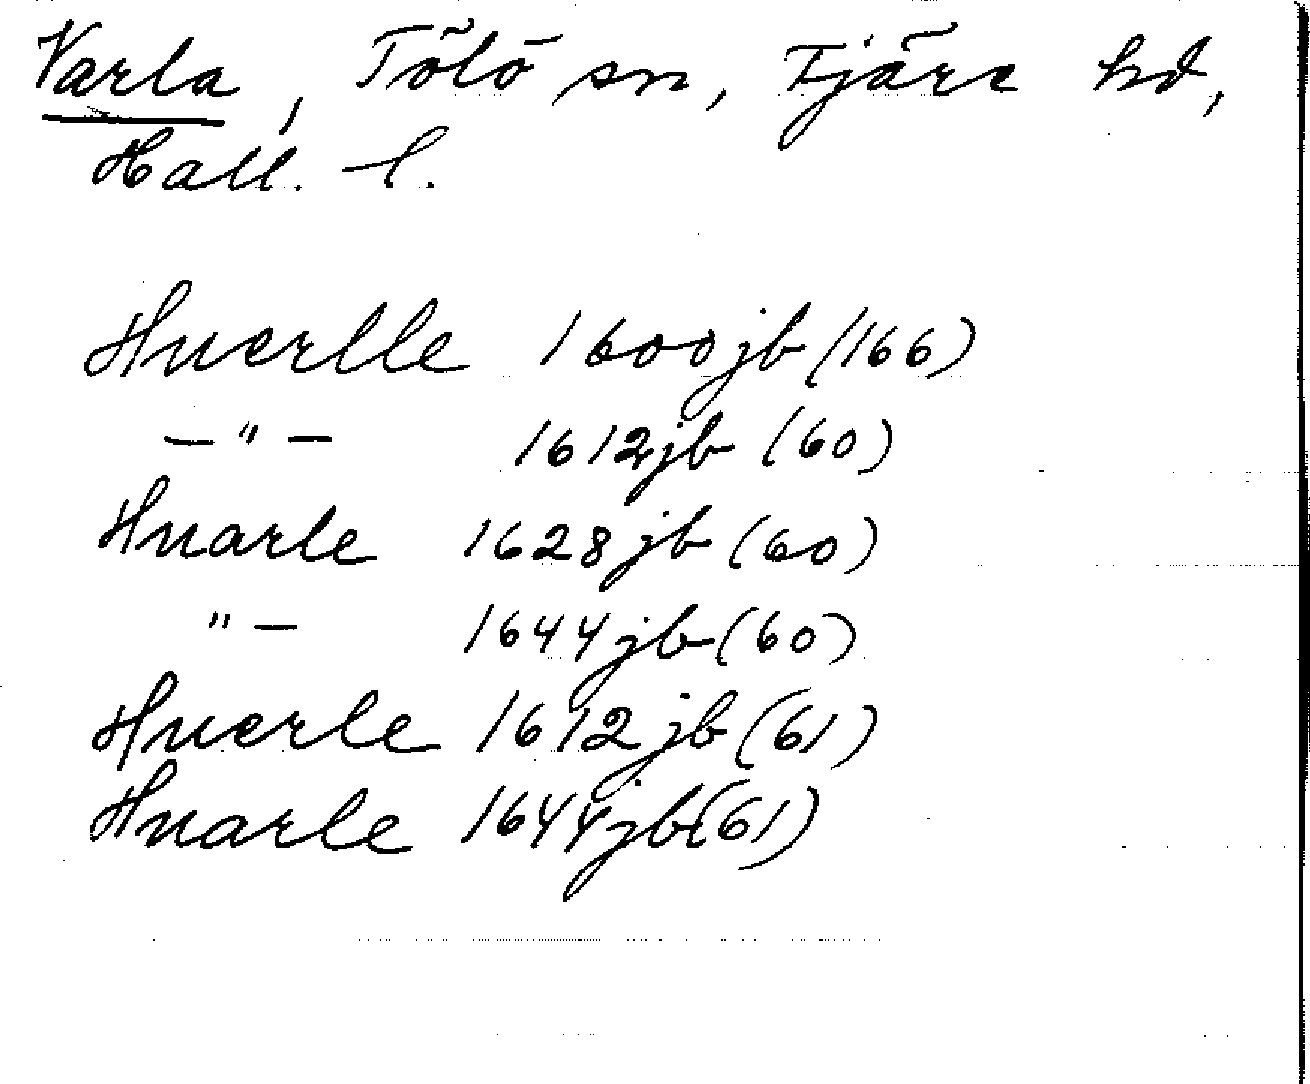 Varla, Tölö sn, Fjäre hd,
Hall. l.
Huerlle 1600 jb (166)
—"— 1612 jb (60)
Huarle 1628 jb (60)
"— 1644 jb (60)
Huerle 1612 jb (61)
Huarle 1644 jb (61)